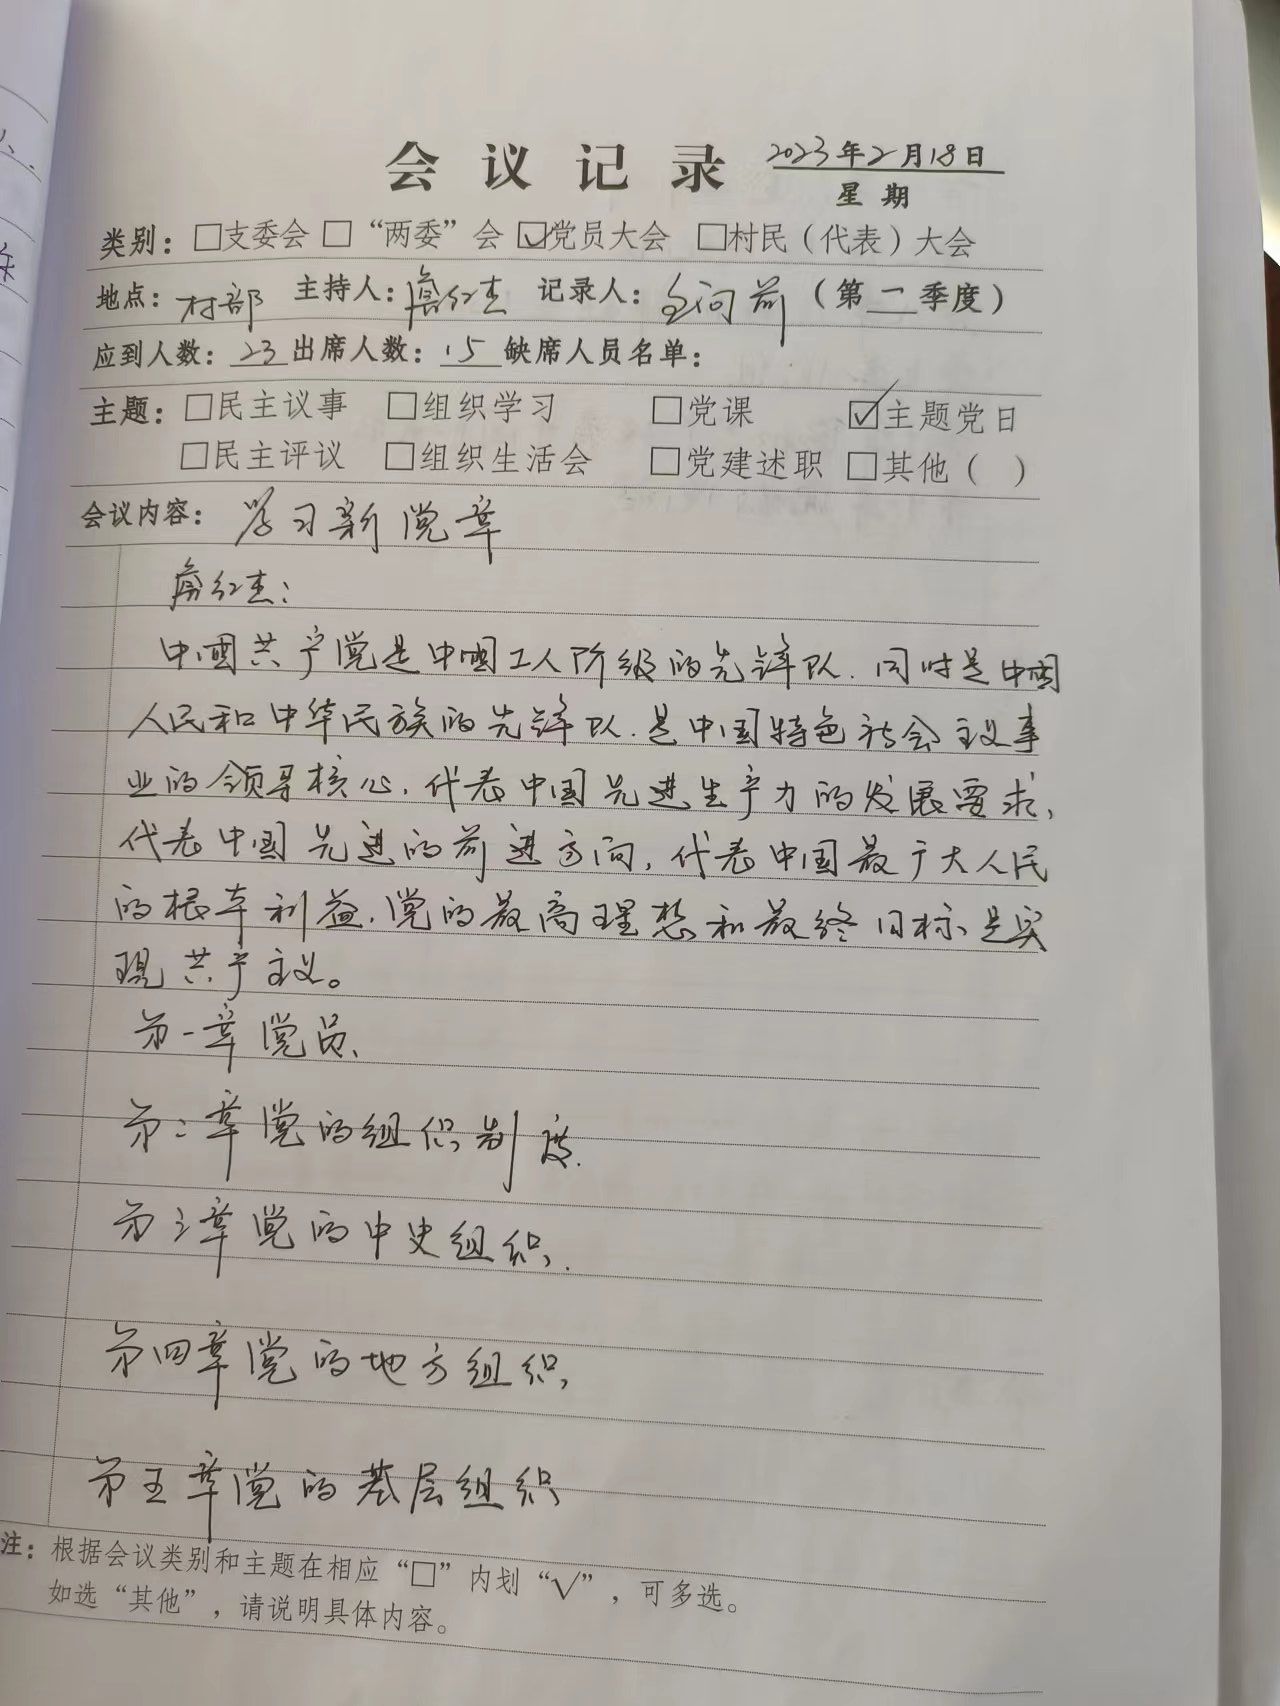 会议记录 2023年2月18日
星期
类别：□支委会 □“两委”会 ☑党员大会 □村民（代表）大会
地点：村部 主持人：红杰 记录人：问前（第一季度）
应到人数：23出席人数：15缺席人员名单：
主题：□民主议事 □组织学习 □党课 ☑主题党日
□民主评议 □组织生活会 □党建述职 □其他（ ）
会议内容：学习新党章
红杰：
中国共产党是中国工人阶级的先锋队.同时是中国
人民和中华民族的先锋队.是中国特色社会主义事
业的领导核心,代表中国先进生产力的发展要求,
代表中国先进的前进方向,代表中国最广大人民
的根本利益.党的最高理想和最终目标是实
现共产主义。
第一章党员、
第二章党的组织制度.
第三章党的中央组织.
第四章党的地方组织,
第五章党的基层组织
注：根据会议类别和主题在相应“□”内划“√”，可多选。
如选“其他”，请说明具体内容。